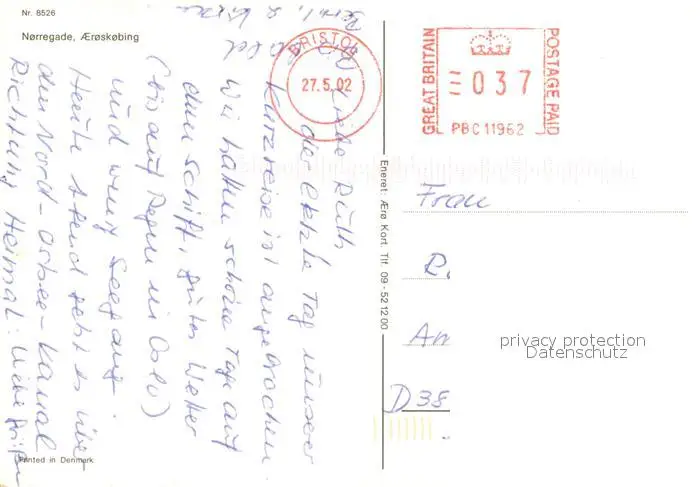 Nr. 8526
Nørregade, Ærøskøbing
Liebe Ruth
der letzte Tag unserer
Kurzreise ist angebrochen.
Wir hatten schöne Tage auf
dem Schiff, gutes Wetter
(bis auf Regen in Oslo)
und wenig Seegang.
Heute Abend geht es über
den Nord-Ostsee-Kanal
Richtung Heimat. Liebe Grüße
BRISTOL
27.5.02
GREAT BRITAIN
037
PBC11962
POSTAGE PAID
Eneret: Ærø Kort. Tlf. 09 - 52 12 00
Frau
R.
Am
D 38
privacy protection
Datenschutz
Printed in Denmark